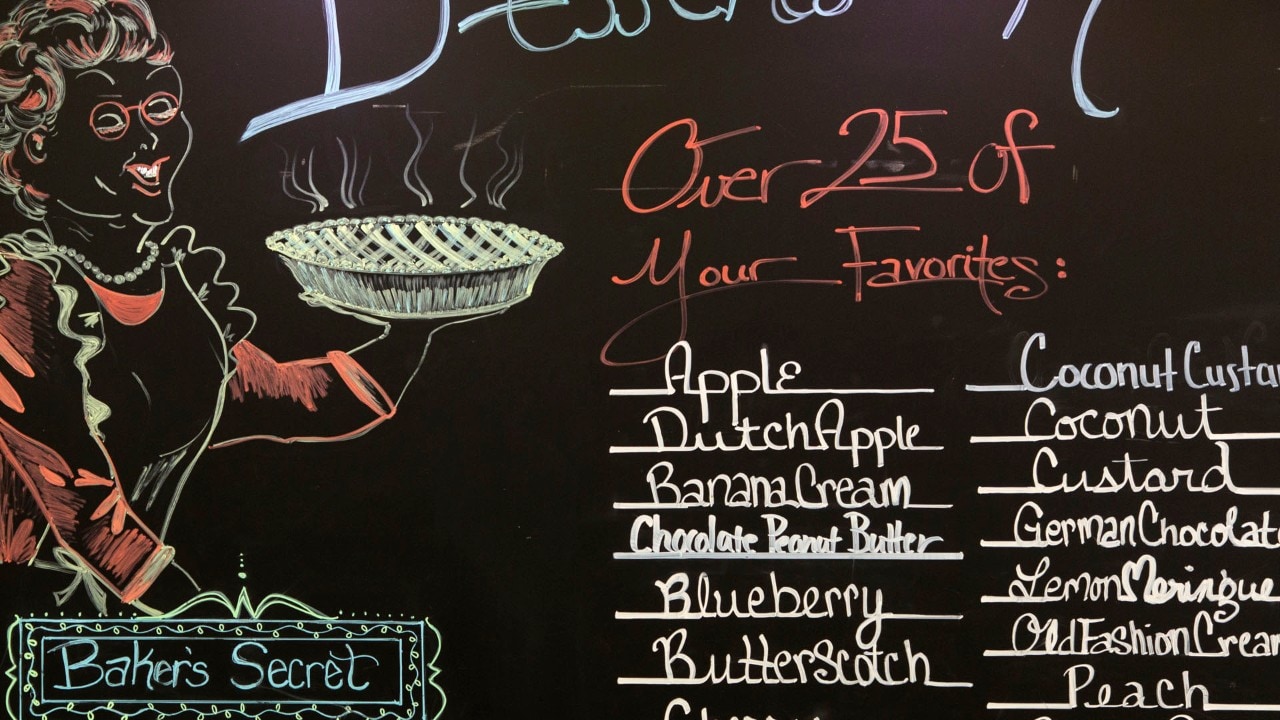 Over 25 of
Your Favorites:
Apple
Dutch Apple
Banana Cream
Chocolate Peanut Butter
Blueberry
Butterscotch
Coconut
Coconut
Custard
German
Lemon Meringue
Old Fashion
Peach
Baker's Secret